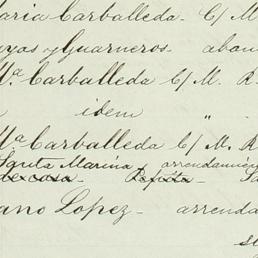 aria Carballeda. C/ M
yas y Guarneros. aban
Mª Carballeda C/ M. R
idem "
Mª Carballeda C/ M. R
Santa Marina arrendamien
de casa. Sa
ano Lopez - arrenda